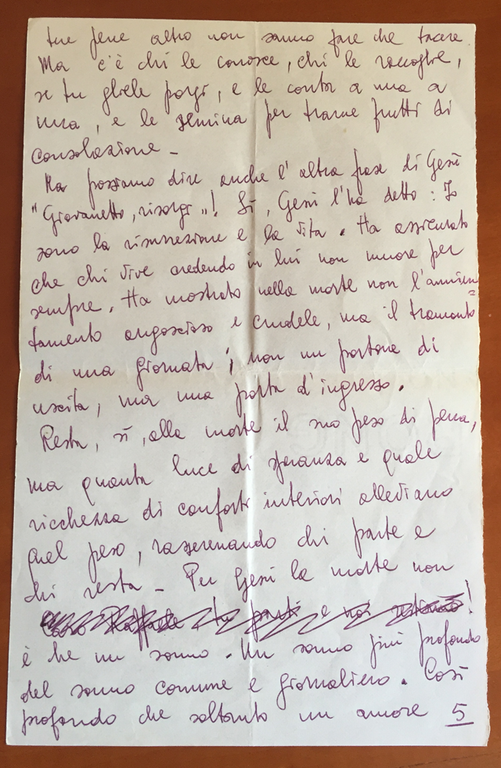 tue pene altro non sanno fare che tacere
Ma c'è chi le conosce, chi le raccoglie,
se tu gliele porgi, e le conta a una a
una, e le semina per trarne frutti di
consolazione -
Ma possiamo dire anche l'altra frase di Gesù
"Giovanetto, risorgi"! Sì, Gesù l'ha detto: Io
sono la risurrezione e la vita. Ha assicurato
che chi vive credendo in lui non muore per
sempre. Ha mostrato nella morte non l'annien=
tamento angoscioso e crudele, ma il tramonto
di una giornata; non un portone di
uscita, ma una porta d'ingresso.
Resta, sì, alla morte il suo peso di pena,
ma quanta luce di speranza e quale
ricchezza di conforti interiori allediano
quel peso, rasserenando chi parte e
chi resta - Per Gesù la morte non
!
è che un sonno. Un sonno più profondo
del sonno comune e giornaliero. Così
profondo che soltanto un amore 5